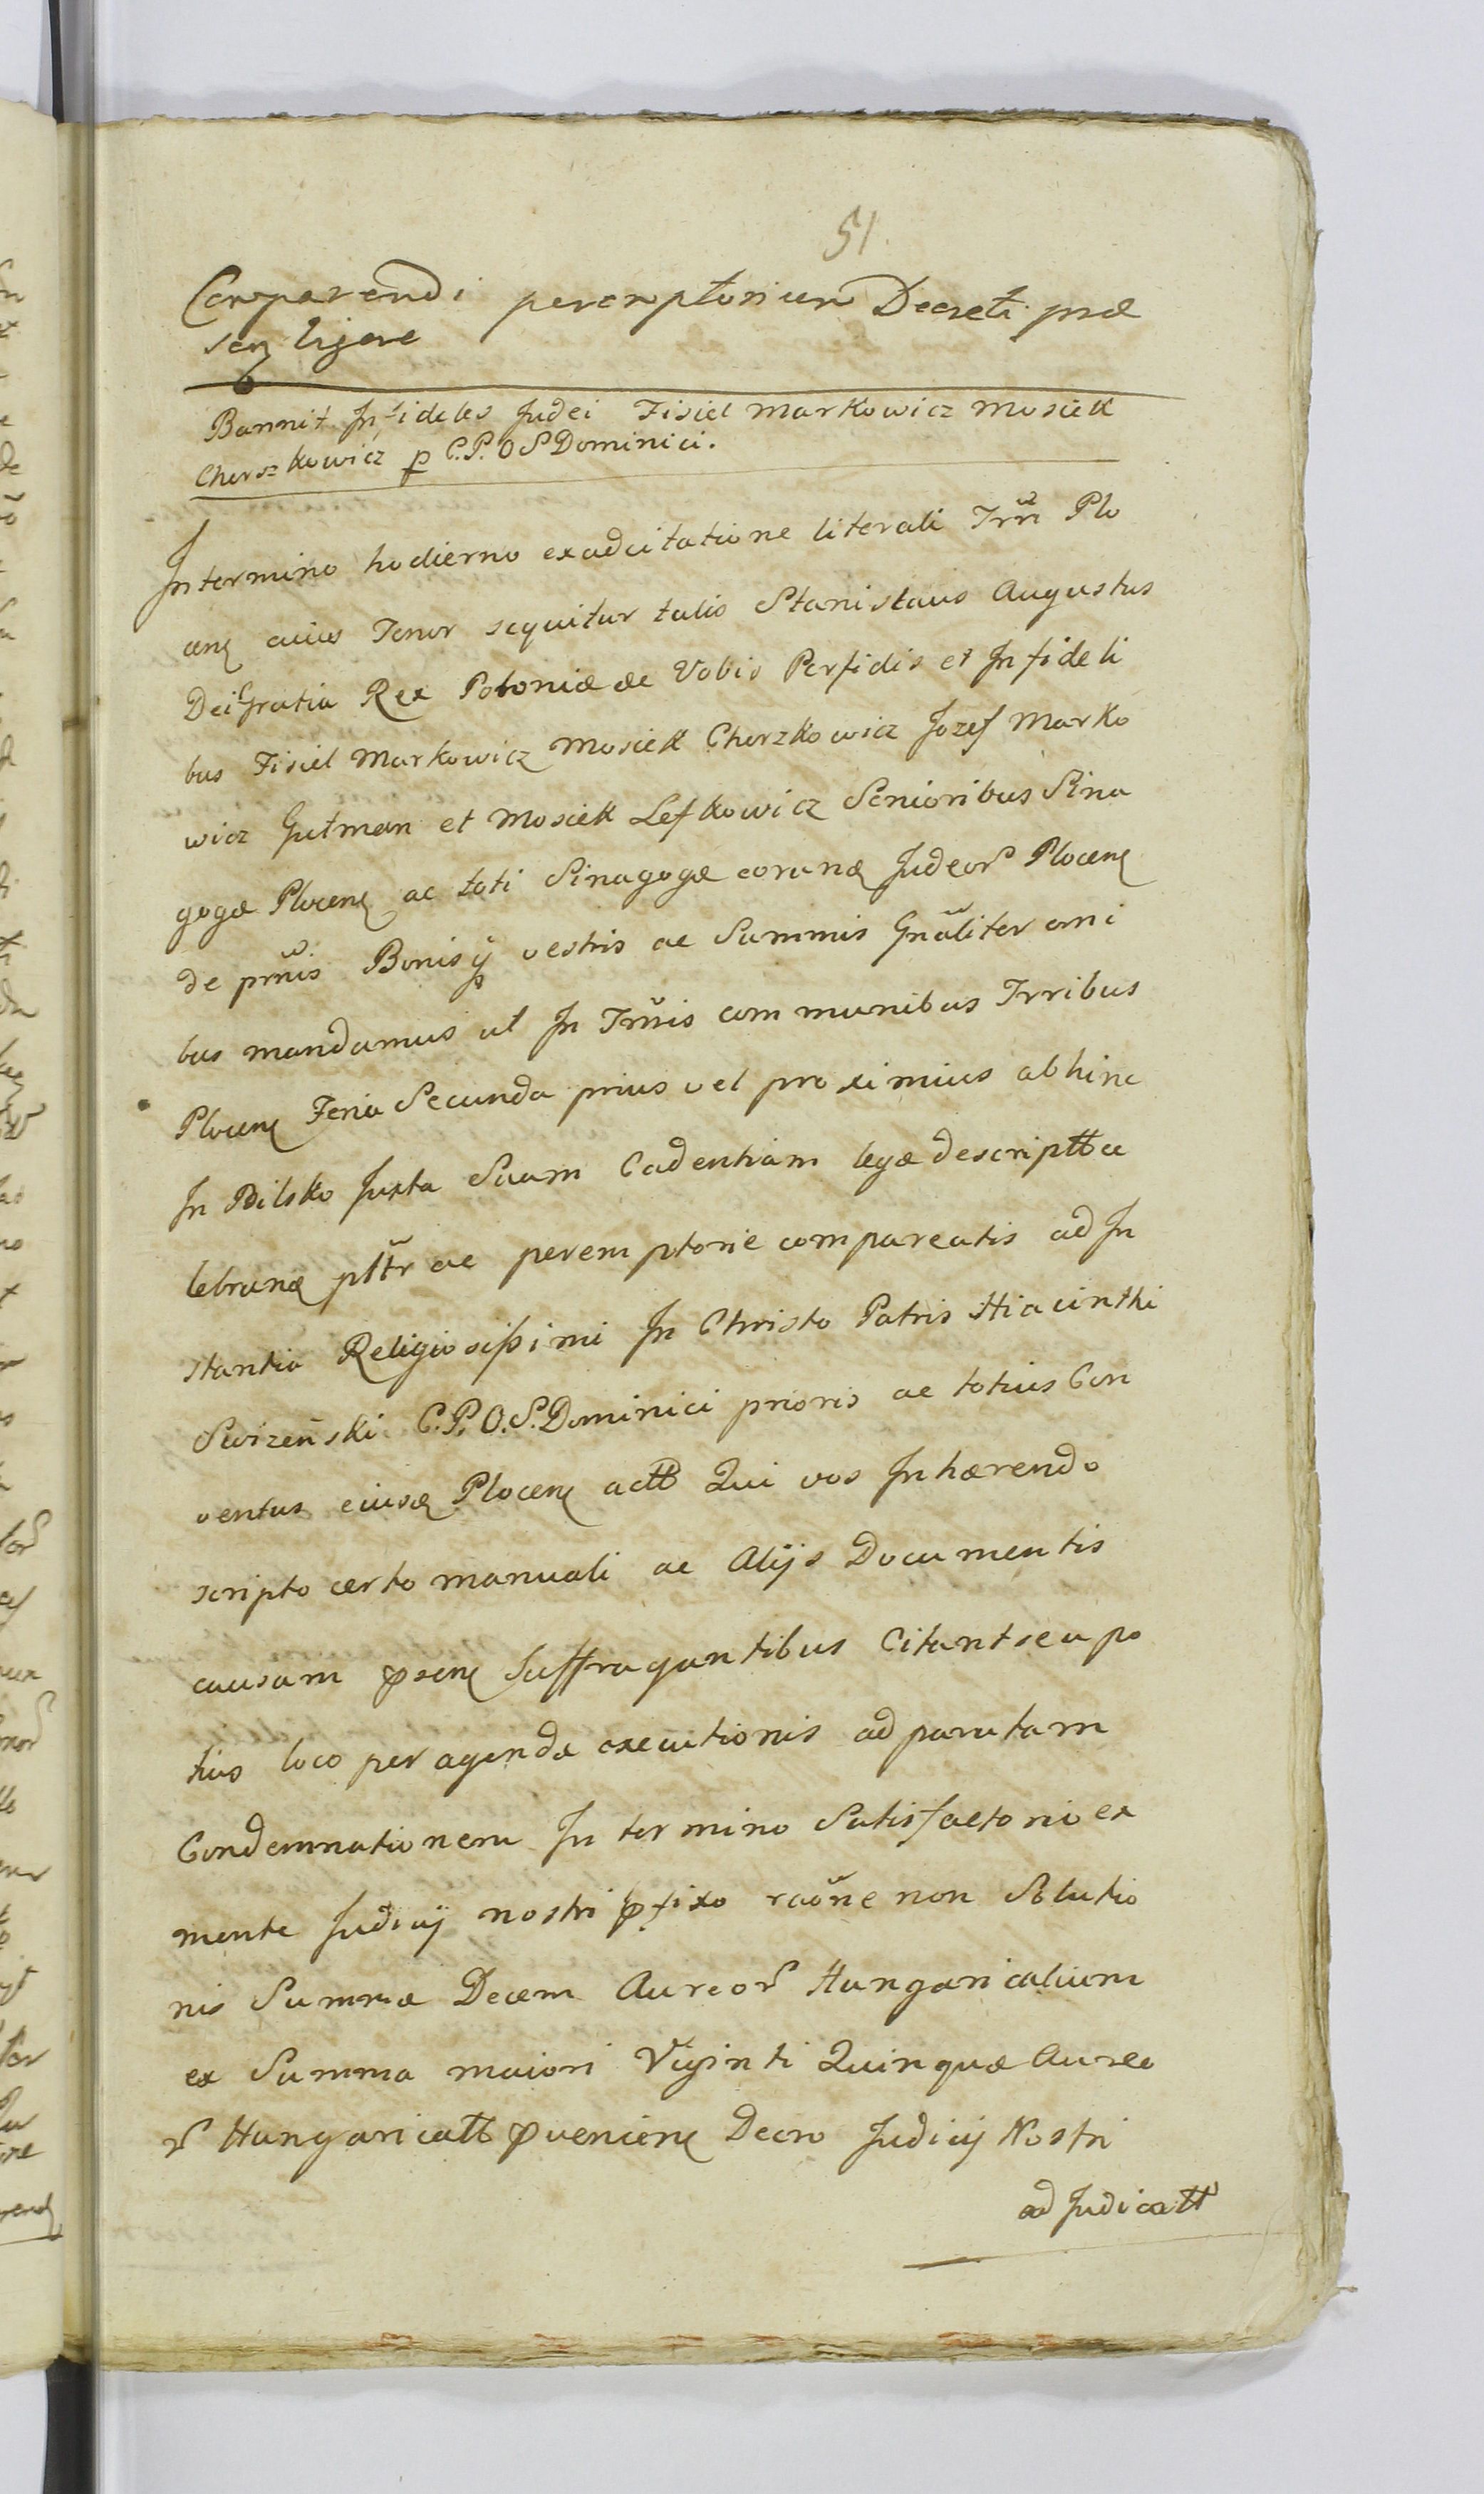 51.
Comparendi peremptorium Decreti præ
sen vigore
Bannit Infideles Judei Fisiel Markowicz Mosiek
Cherszkowicz p C.P. O S Dominici.
In termino hodierno ex adcitatione literali Trrī Plo
cen cuius Tenor sequitur talis Stanislaus Augustus
Dei Gratia Rex Poloniæ &c Vobis Perfidis et Infideli
bus Fisiel Markowicz Mosiek Cherzkowicz Jozef Marko
wicz Gutman et Mosiek Lefkowicz Senioribus Sina
gogæ Plocen ac toti Sinagogæ coruna Judeor Plocen
de prnis Bonisq vestris ac Summis Gnaliter omi
bus mandamus ut In Trnis communibus Trribus
Plocen Feria Secunda prius vel proximius abhinc
In Bilsko Juxta Suam Cadentiam lege descriptt ce
lebrana pttr ac peremptorie compareatis ad In
stantia Religiosissimi In Christo Patris Hiacinthi
C.P. O.S. Dominici prioris ac totius Con
ventus eiusd Plocen actt Qui vos Inhærendo
scripto certo manuali ac Alijs Documentis
causam psen Suffragantibus Citant seu po
tius loco peragenda executionis ad paratam
Condemnationem In termino Satisfactorio ex
mente Judicij nostri pfixo raõne non Solutio
nis Summæ Decem Aureor Hungaricalium
ex Summa maiori Viginti Quinquæ Aureo
r Hungaricatt pvenien Decro Judicij Nostri
adJudicatt